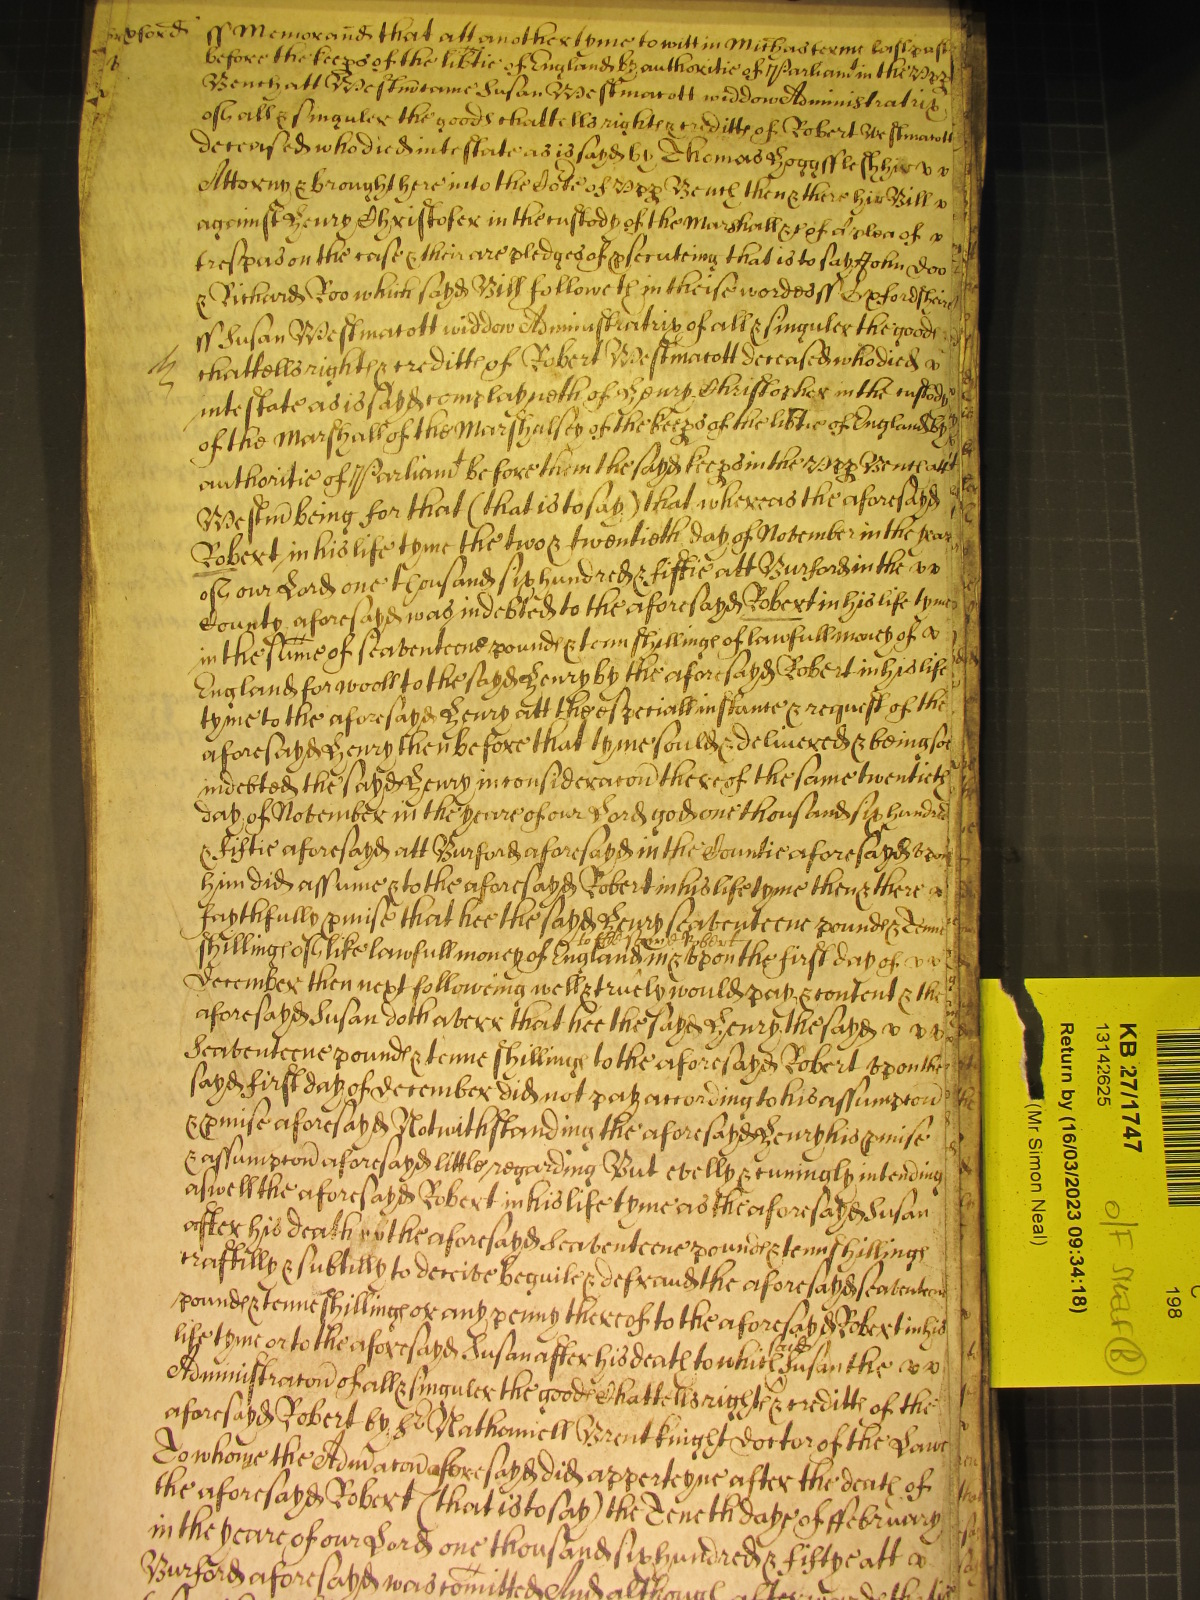 Oxford ss Memorand that att another tyme to witt in Michas terme last past
before the keeps of the libtie of England by authoritie of Parliamt in the upp
Bench att Westm came Susan Westmacott widdow Administratrix
of all & singuler the goods chattells rights & creditts of Robert Westmacott
deceased who died intestate as is sayd by Thomas hir
Attorny & brought here into the Cote of upp Bench then & there hir Bill
against Henry Christofer in the custody of the Marshall &c of a plea of
trespas on the case & their are pledges of psecuteing that is to say John Doo
& Richard Roo which sayd Bill followeth in theise wordes ss Oxfordsheire
ss Susan Westmacott widdow Administratrix of all & singuler the goods
chattells rights & creditts of Robert Westmacott deceased who died
intestate as is sayd complayneth of Henry Christopher in the custody
of the Marshall of the Marshalsey of the keeps of the libtie of England by
authoritie of Parliamt before them the sayd keeps in the upp Bench att
Westm being for that (that is to say) that whereas the aforesayd
Robert in his life tyme the two & twentieth day of November in the year
of our Lord one thousand six hundred & fiftie att Burford in the
County aforesayd was indebted to the aforesayd Robert in his life tyme
in the sume of seaventeene pounds & tenn shillings of lawfull money of
England for wooll to the sayd Henry by the aforesayd Robert in his life
tyme to the aforesayd Henry att the especiall instance & request of the
aforesayd Henry then before that tyme sould & delivered & being soe
indebted the sayd Henry in consideracon thereof the same twentieth
day of November in the yeare of our Lord god one thousand six hundred
& fiftie aforesayd att Burford aforesayd in the Countie aforesayd upon
him did assume & to the aforesayd Robert in his life tyme then & there
faythfully pmise that hee the sayd Henry seaventeene pounds & Tenne
to the said Robert
shillings of like lawfull money of England in & upon the first day of
December then next followeing well & truely would pay & content & the
aforesayd Susan doth averr that hee the sayd Henry the sayd
Seaventeene pounds & tenne shillings to the aforesayd Robert upon the
sayd first day of December did not pay according to his assumpcon
& pmise aforesayd Notwithstanding the aforesayd Henry his pmise
& assumpcon aforesayd little regarding But evelly & cuningly intending
aswell the aforesayd Robert in his life tyme as the aforesayd Susan
after his death of the aforesayd Seaventeene pounds & tenn shillings
craftilly & subtilly to deceive beguile & defraud the aforesayd seaventeene
pounds & tenne shillings or any penny thereof to the aforesayd Robert in his
life tyme or to the aforesayd Susan after his death to which said Susan the
Administracon of all & singuler the goods Chattells rights & creditts of the
aforesayd Robert by Sr Nathaniell Brent knight doctor of the Lawe
To whome the Admracon aforesayd did apperteyne after the death of
the aforesayd Robert (that is to say) the Tenth daye of ffebruary
in the yeare of our Lord one thousand six hundred & fiftye att
Burford aforesayd was comitted And although afterwards
KB 27/1747
13142625
Return by (16/03/2023 09:34:18)
(Mr Simon Neal)
198